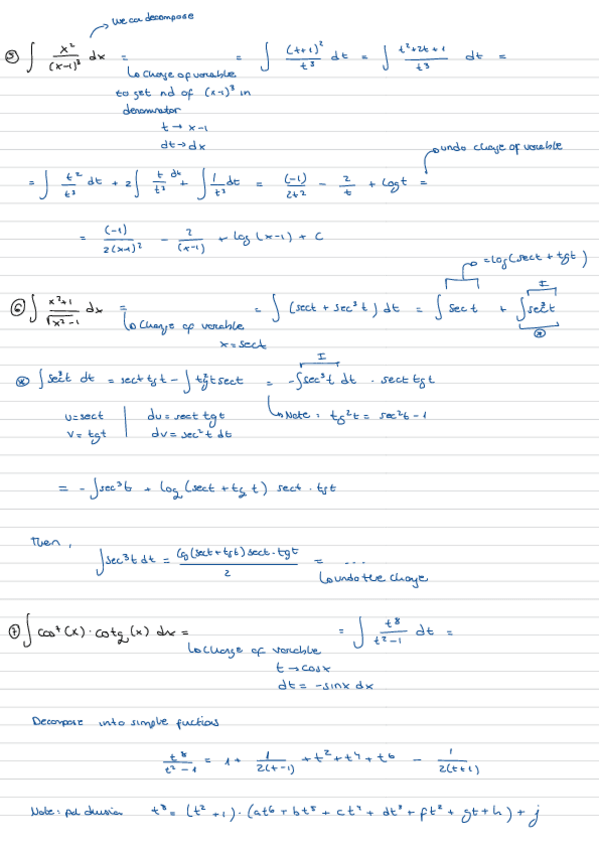 we can decompose
⑤ ∫ x²/(x-1)³ dx = = ∫ (t+1)²/t³ dt = ∫ (t²+2t+1)/t³ dt =
↳ change of variable
to get rid of (x-1)³ in
denominator
t → x-1
dt → dx
undo change of variable
= ∫ t²/t³ dt + 2∫ t/t³ dt + ∫ 1/t³ dt = (-1)/2t² - 2/t + log t =
= (-1)/2(x-1)² - 2/(x-1) + log (x-1) + C
= log(sect + tgt)
⑥ ∫ (x²+1)/√(x²-1) dx = = ∫ (sect + sec³t) dt = ∫ sect + ∫ sec³t
I
↳ change of variable
x = sect
∫ sec³t dt = sect tgt - ∫ tg²t sect = -∫sec³t dt · sect tgt
I
u = sect | du = sect tgt
v = tgt | dv = sec²t dt
↳ Note: tg²t = sec²t - 1
= -∫sec³t + log (sect + tgt) sect · tgt
Then,
∫sec³t dt = log(sect + tgt) sect · tgt / 2 = ...
↳ undo the change
⑦ ∫ cos⁷(x) · cotg(x) dx = = ∫ t⁸/(t²-1) dt =
↳ change of variable
t → cosx
dt = -sinx dx
Decompose into simple fuctions
t⁸/(t²-1) = 1 + 1/2(t-1) + t² + t⁴ + t⁶ - 1/2(t+1)
Note: pol division t⁸ = (t²+1) · (at⁶ + bt⁵ + ct⁴ + dt³ + ft² + gt + h) + j